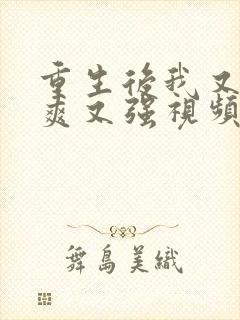 重生後我又
爽又强視頻
舞島美織